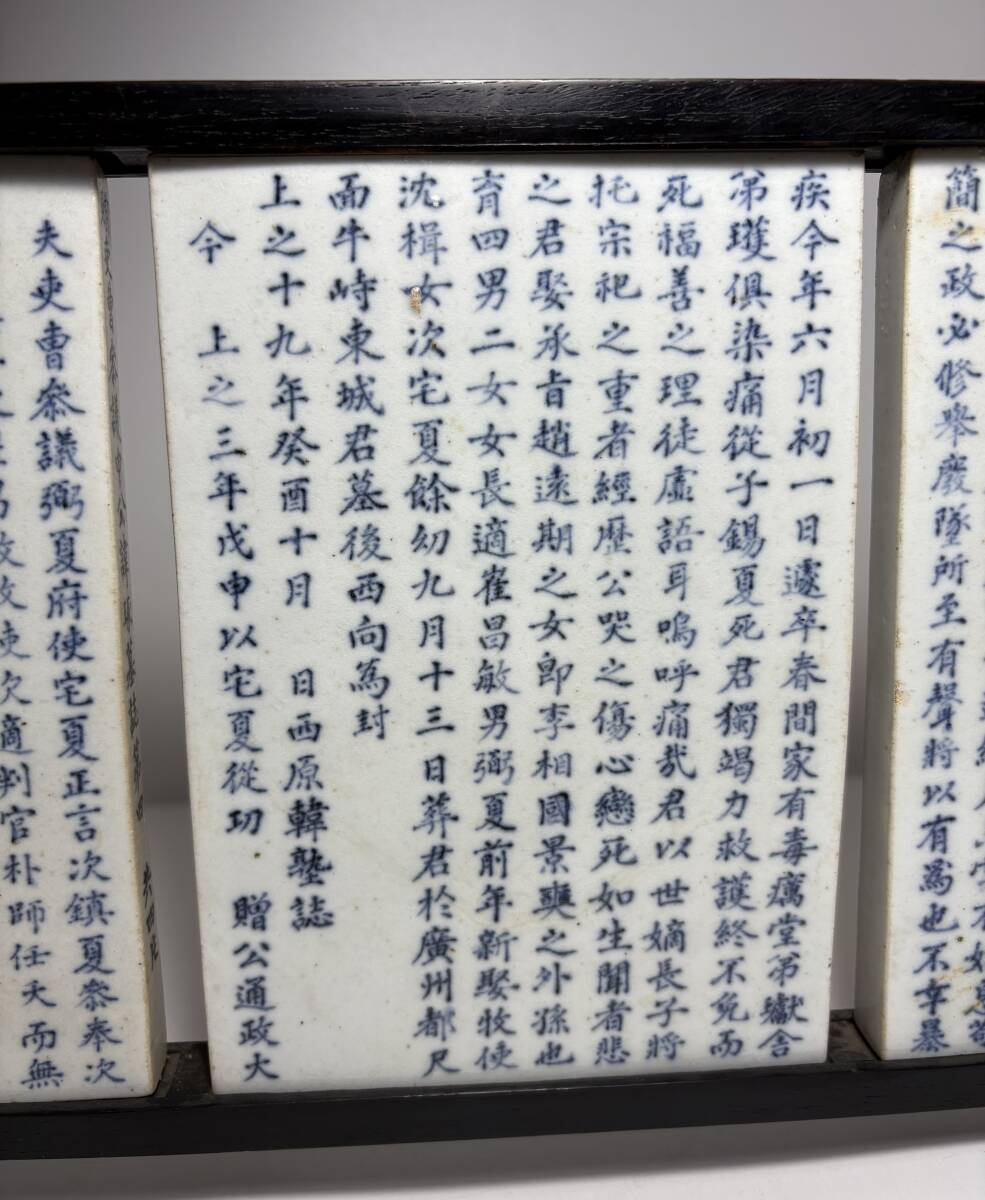 簡之政必修舉廢墜所至有聲將以有爲也不幸暴
疾今年六月初一日遽卒春間家有毒癘堂弟嶽舍
弟瓁俱染痛從子錫夏死君獨竭力救護終不免而
死福善之理徒虛語耳嗚呼痛㦲君以世嫡長子將
托宗祀之重者經歷公哭之傷心戀死如生聞者悲
之君娶承旨趙遠期之女卽李相國景奭之外孫也
育四男二女女長適崔昌敏男弼夏前年新娶牧使
沈楫女次宅夏餘幼九月十三日葬君於廣州都尺
面牛峙東城君墓後西向爲封
上之十九年癸酉十月　日西原韓塾誌
今　上之三年戊申以宅夏從功　贈公通政大
夫吏曹參議弼夏府使宅夏正言次鎮夏參奉次
適判官朴師任夭而無